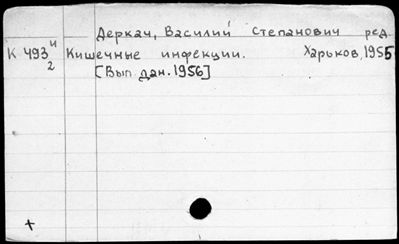 Деркач, Василий Степанович ред.
К 493 ч 2 Кишечные инфекции. Харьков, 1955
[Вып. дан. 1956]
+